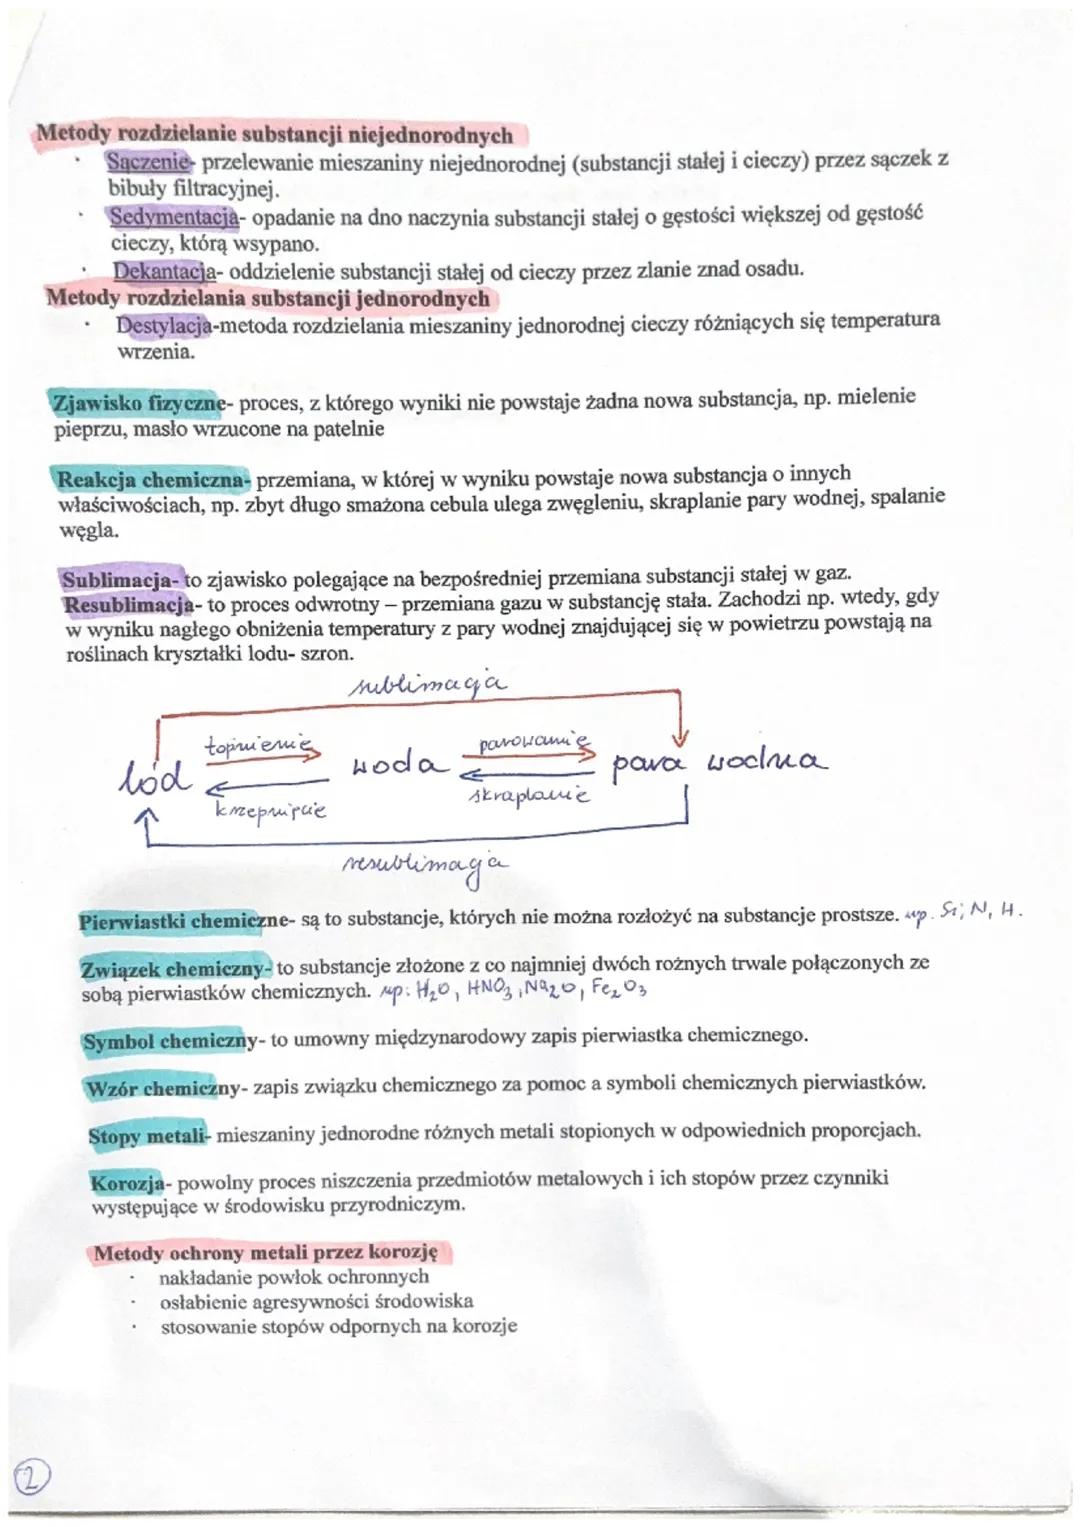 Metody rozdzielanie substancji niejednorodnych
· Sączenie- przelewanie mieszaniny niejednorodnej (substancji stałej i cieczy) przez sączek z
bibuły filtracyjnej.
· Sedymentacja- opadanie na dno naczynia substancji stałej o gęstości większej od gęstość
cieczy, którą wsypano.
· Dekantacja- oddzielenie substancji stałej od cieczy przez zlanie znad osadu.
Metody rozdzielania substancji jednorodnych
· Destylacja-metoda rozdzielania mieszaniny jednorodnej cieczy różniących się temperatura
wrzenia.
Zjawisko fizyczne- proces, z którego wyniki nie powstaje żadna nowa substancja, np. mielenie
pieprzu, masło wrzucone na patelnie
Reakcja chemiczna- przemiana, w której w wyniku powstaje nowa substancja o innych
właściwościach, np. zbyt długo smażona cebula ulega zwęgleniu, skraplanie pary wodnej, spalanie
węgla.
Sublimacja- to zjawisko polegające na bezpośredniej przemiana substancji stałej w gaz.
Resublimacja- to proces odwrotny – przemiana gazu w substancję stała. Zachodzi np. wtedy, gdy
w wyniku nagłego obniżenia temperatury z pary wodnej znajdującej się w powietrzu powstają na
roślinach kryształki lodu- szron.
sublimacja
topnienie parowanie
lód woda para wodna
krzepnięcie skraplanie
resublimacja
Pierwiastki chemiczne- są to substancje, których nie można rozłożyć na substancje prostsze. np. Si, N, H.
Związek chemiczny- to substancje złożone z co najmniej dwóch rożnych trwale połączonych ze
sobą pierwiastków chemicznych. np: H₂O, HNO₃, Na₂O, Fe₂O₃
Symbol chemiczny- to umowny międzynarodowy zapis pierwiastka chemicznego.
Wzór chemiczny- zapis związku chemicznego za pomoc a symboli chemicznych pierwiastków.
Stopy metali- mieszaniny jednorodne różnych metali stopionych w odpowiednich proporcjach.
Korozja- powolny proces niszczenia przedmiotów metalowych i ich stopów przez czynniki
występujące w środowisku przyrodniczym.
Metody ochrony metali przez korozję
· nakładanie powłok ochronnych
· osłabienie agresywności środowiska
· stosowanie stopów odpornych na korozje
2